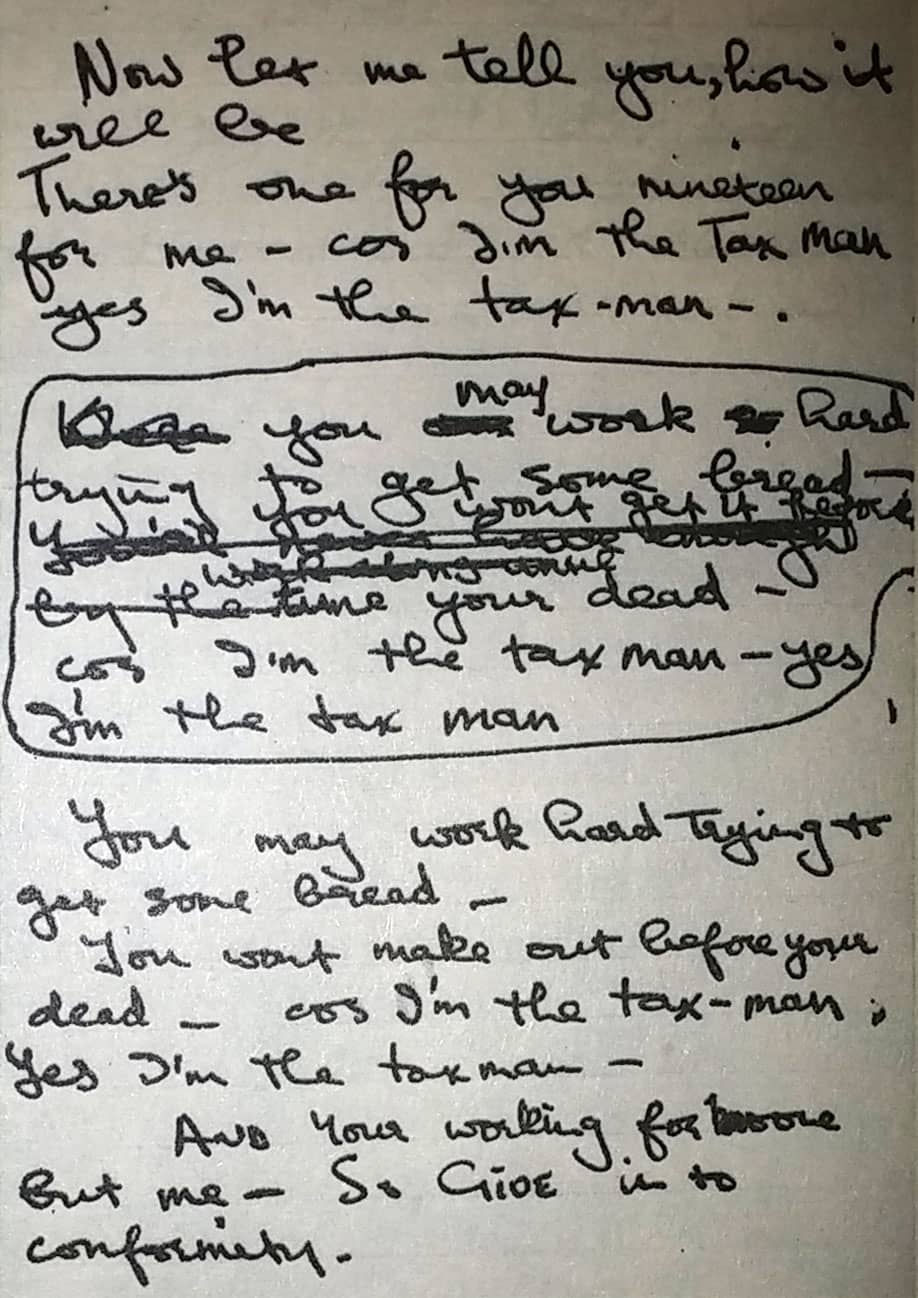 Now let me tell you, how it
will be
There's one for you nineteen
for me - cos I'm the Tax Man
yes I'm the tax-man -.
you may work hard
trying to get some bread -
you wont get it before
by the time your dead -
cos I'm the tax man - yes
I'm the tax man
You may work hard Trying to
get some bread -
You wont make out before your
dead - cos I'm the tax-man,
Yes I'm the taxman -
AND Your working for noone
But me - So GiVE in to
conformity.